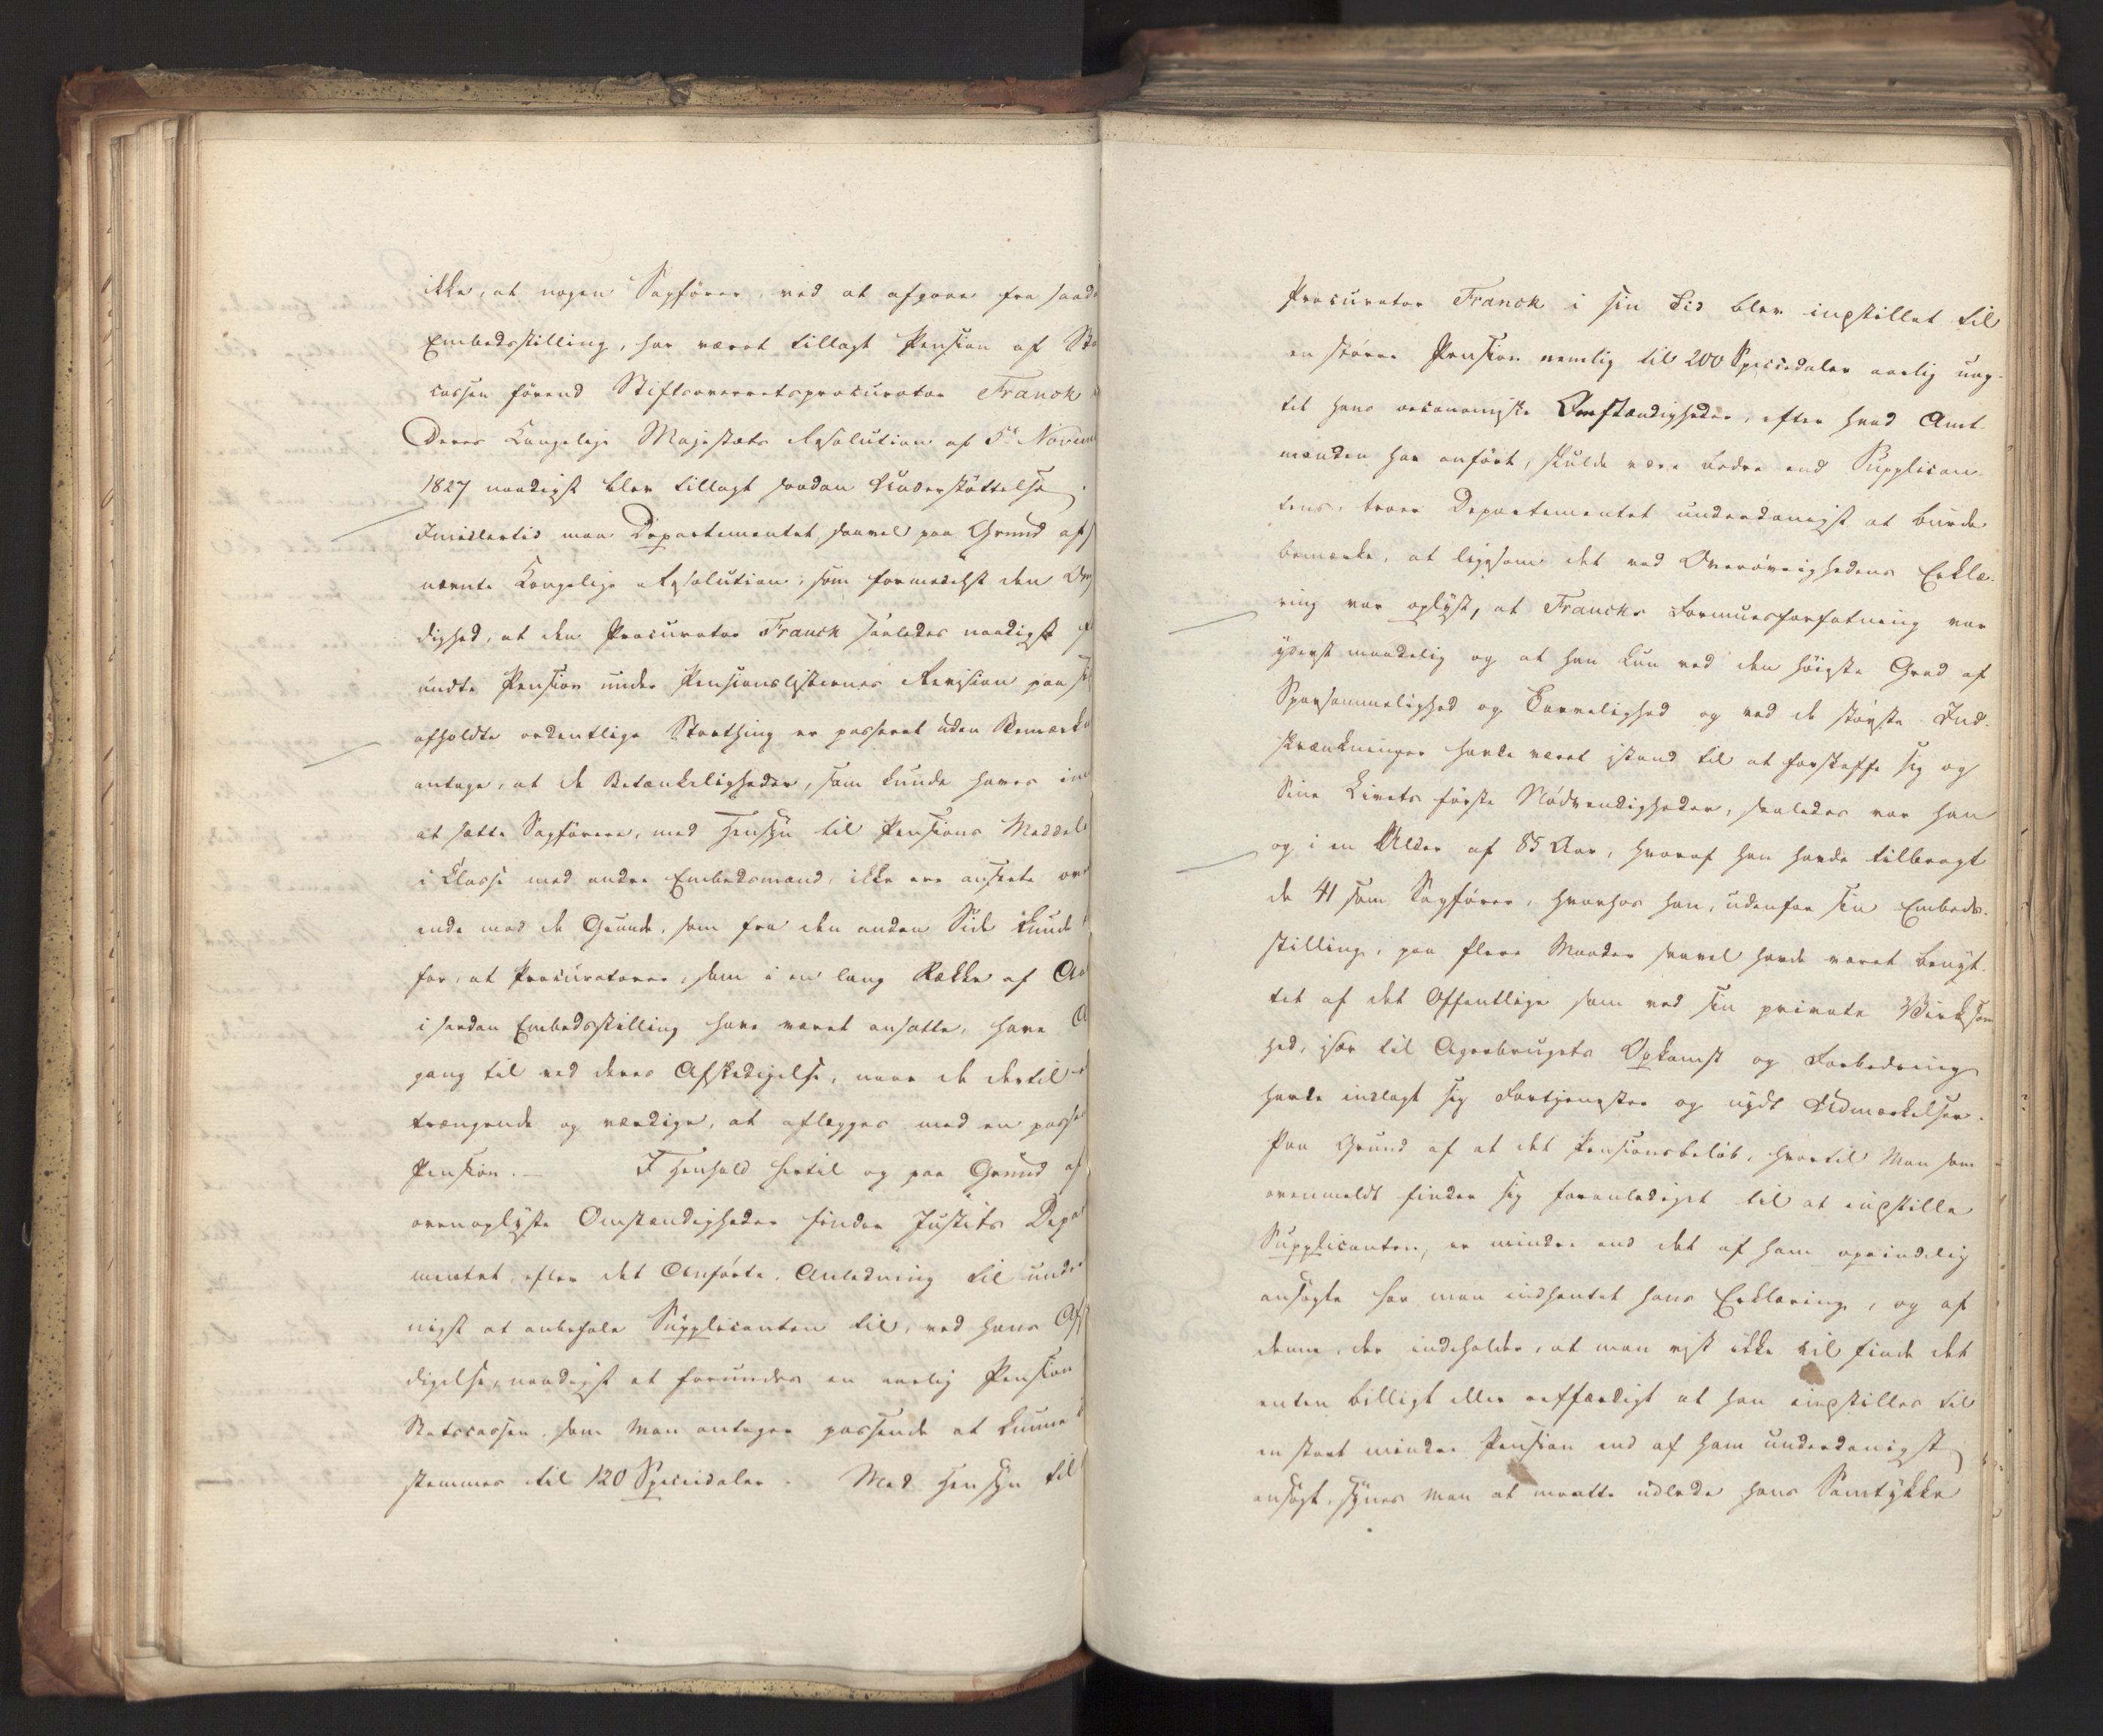 ikke, at nogen Sagfører, ved at afgaae fra saad
Embedsstilling, har været tillagt Pension af Sta
cassen førend Stiftsoverretsprocurator Franck
Deres Kongelige Majestæts Resolution af 5te Novem
1827 naadigst blev tillagt saadan Understøttelse.
Imidlertid maa Departementet, saavel paa Grund af
nævnte Kongelige Resolution, som formedelst den Om
dighed, at den Procurator Franck saaledes naadigst
undte Pension under Pensionslisternes Revision paa
afholdte ordentlige Storthing er passeret uden Bemærk
antage, at de Betænkeligheder, som kunde haves im
at sætte Sagførere, med Hensyn til Pensions Meddel
i Classe med andre Embedsmænd, ikke ere ansete ov
ende mod de Grunde, som fra den anden Side kunde
for, at Procuratorer, som i en lang Række af Aa
i saadan Embedsstilling have været ansatte, have A
gang til ved deres Afskedigelse, naar de dertil
trængende og værdige, at aflægges med en passe
Pension. — I Henhold hertil og paa Grund af
ovenoplyste Omstændigheder finder Justits Depar
mentet, efter det Anførte, Anledning til unde
nigst at anbefale Supplicanten til, ved hans Af
digelse, naadigst at forundes en aarlig Pension
Statscassen, som man antager passende at kunne
stemmes til 120 Speciedaler. Med Hensyn til
Procurator Franck i sin Tid blev indstillet til
en større Pension nemlig til 200 Speciedaler aarlig uag-
tet hans oeconomiske Omstændigheder, efter hvad Amt-
manden har anført, skulde være bedre end Supplican-
tens, troer Departementet underdanigst at burde
bemærke, at ligesom det ved Overøvrighedens Erklæ-
ring var oplyst, at Francks Formuesforfatning var
yderst maadelig og at han kun ved den høieste Grad af
Sparsommelighed og Tarvelighed og ved de største Ind-
skrænkninger havde været istand til at forskaffe sig og
Sine Livets første Nødvendigheder, saaledes var han
og i en Alder af 85 Aar, hvoraf han havde tilbragt
de 41 som Sagfører, hvorhos han, udenfor sin Embeds-
stilling, paa flere Maader saavel havde været benyt-
tet af det Offentlige som ved sin private Virksom
hed, især til Agerbrugets Opkomst og Forbedring
havde indlagt sig Fortjenester og nydt Udmærkelser.
Paa Grund af at det Pensionsbeløb, hvortil Man som
ovenmeldt finder sig foranlediget til at indstille
Supplicanten, er mindre end det af ham oprindelig
ansøgte har man indhentet hans Erklæring, og af
denne, der indeholder, at man vist ikke vil finde det
enten billigt eller retfærdigt at han indstilles til
en stort mindre Pension end af ham underdanigst
ansøgt, synes man at maatte udlede hans Samtykke